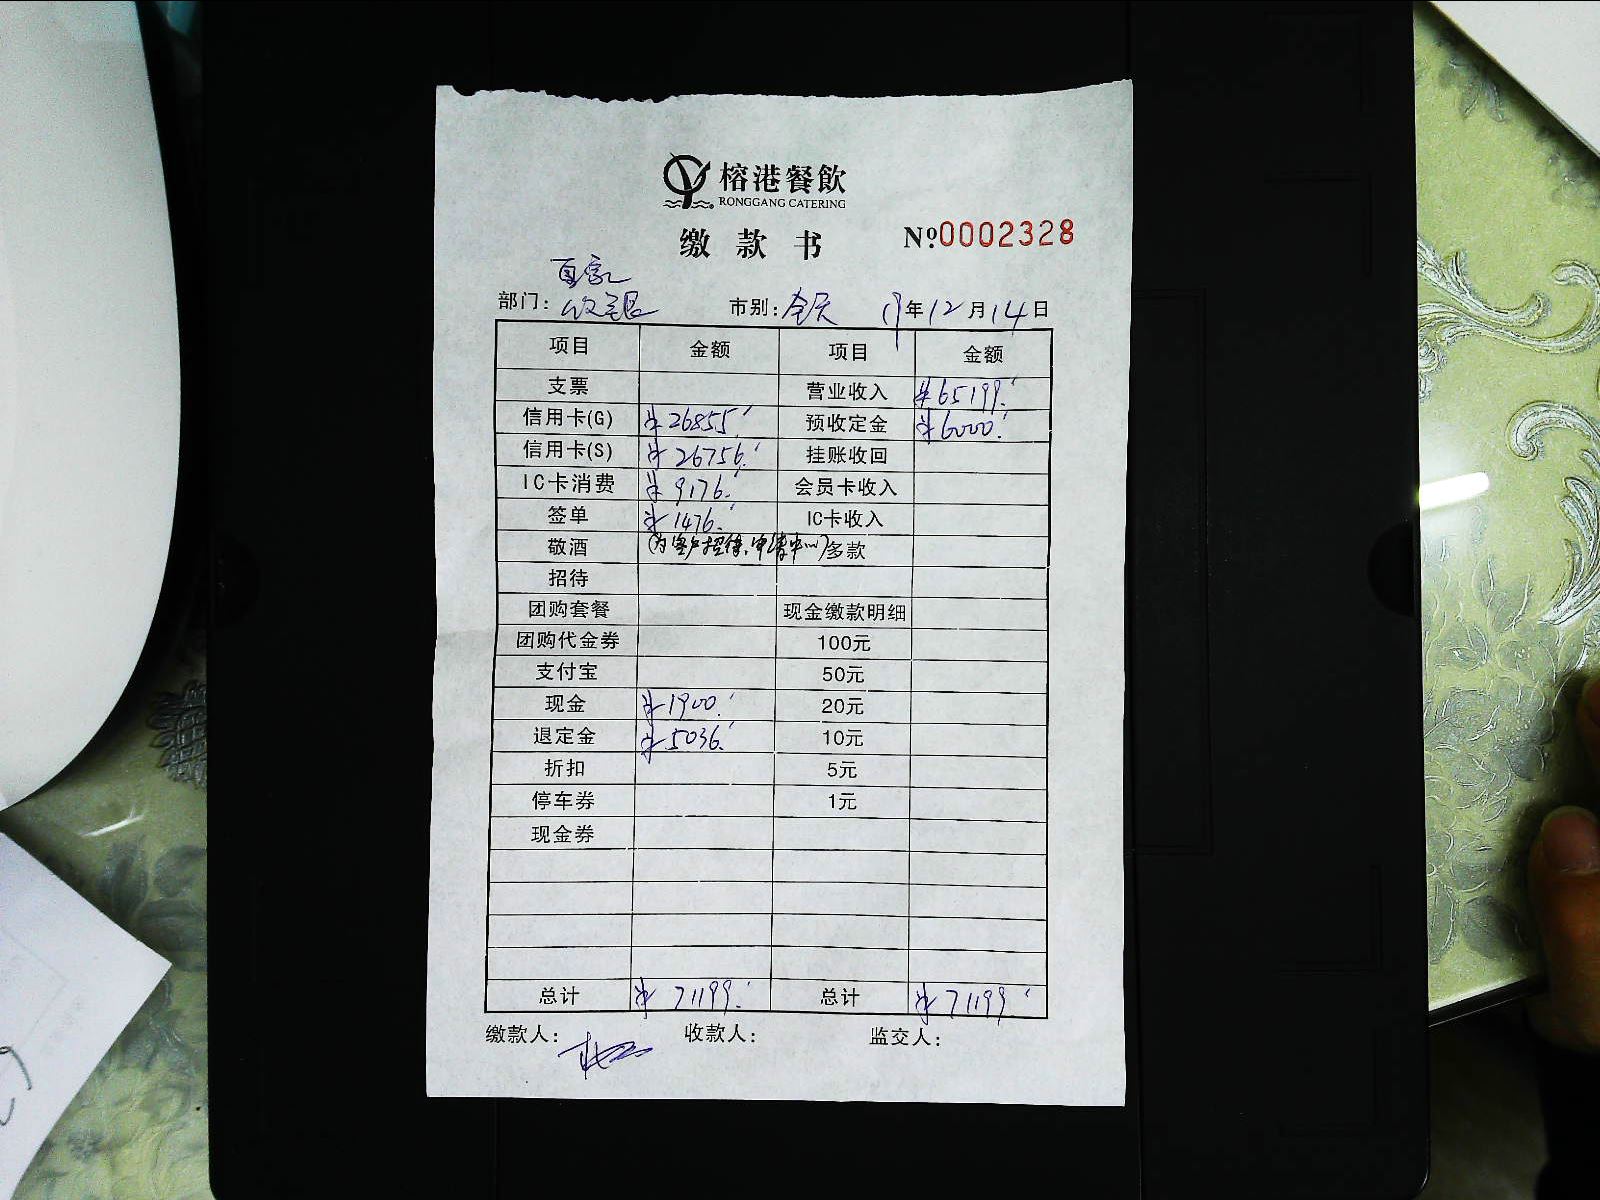 榕港餐飲
RONGGANG CATERING
缴款书 №0002328
部门: 收银 市别: 全天 17年12月14日
项目 金额 项目 金额
支票 营业收入 ¥65199.
信用卡(G) ¥26855 预收定金 ¥6000.
信用卡(S) ¥26756. 挂账收回
IC卡消费 ¥9176. 会员卡收入
签单 ¥1476. IC卡收入
敬酒 (为客户招待,申请中心) 多款
招待
团购套餐 现金缴款明细
团购代金券 100元
支付宝 50元
现金 ¥1900. 20元
退定金 ¥5036. 10元
折扣 5元
停车券 1元
现金券
总计 ¥71199. 总计 ¥71199.
缴款人: 收款人: 监交人: